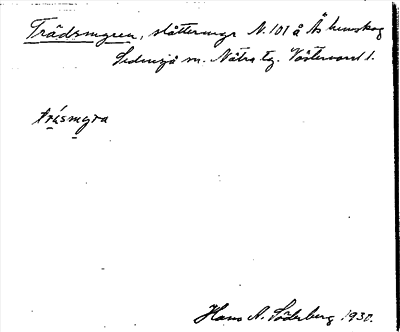 Trädsmyren, slåttermyr N. 101 å Ås hemskog
Sidensjö sn. Nätra tg. Västernorrl l.
trísmyra
Hans N. Söderberg 1930.